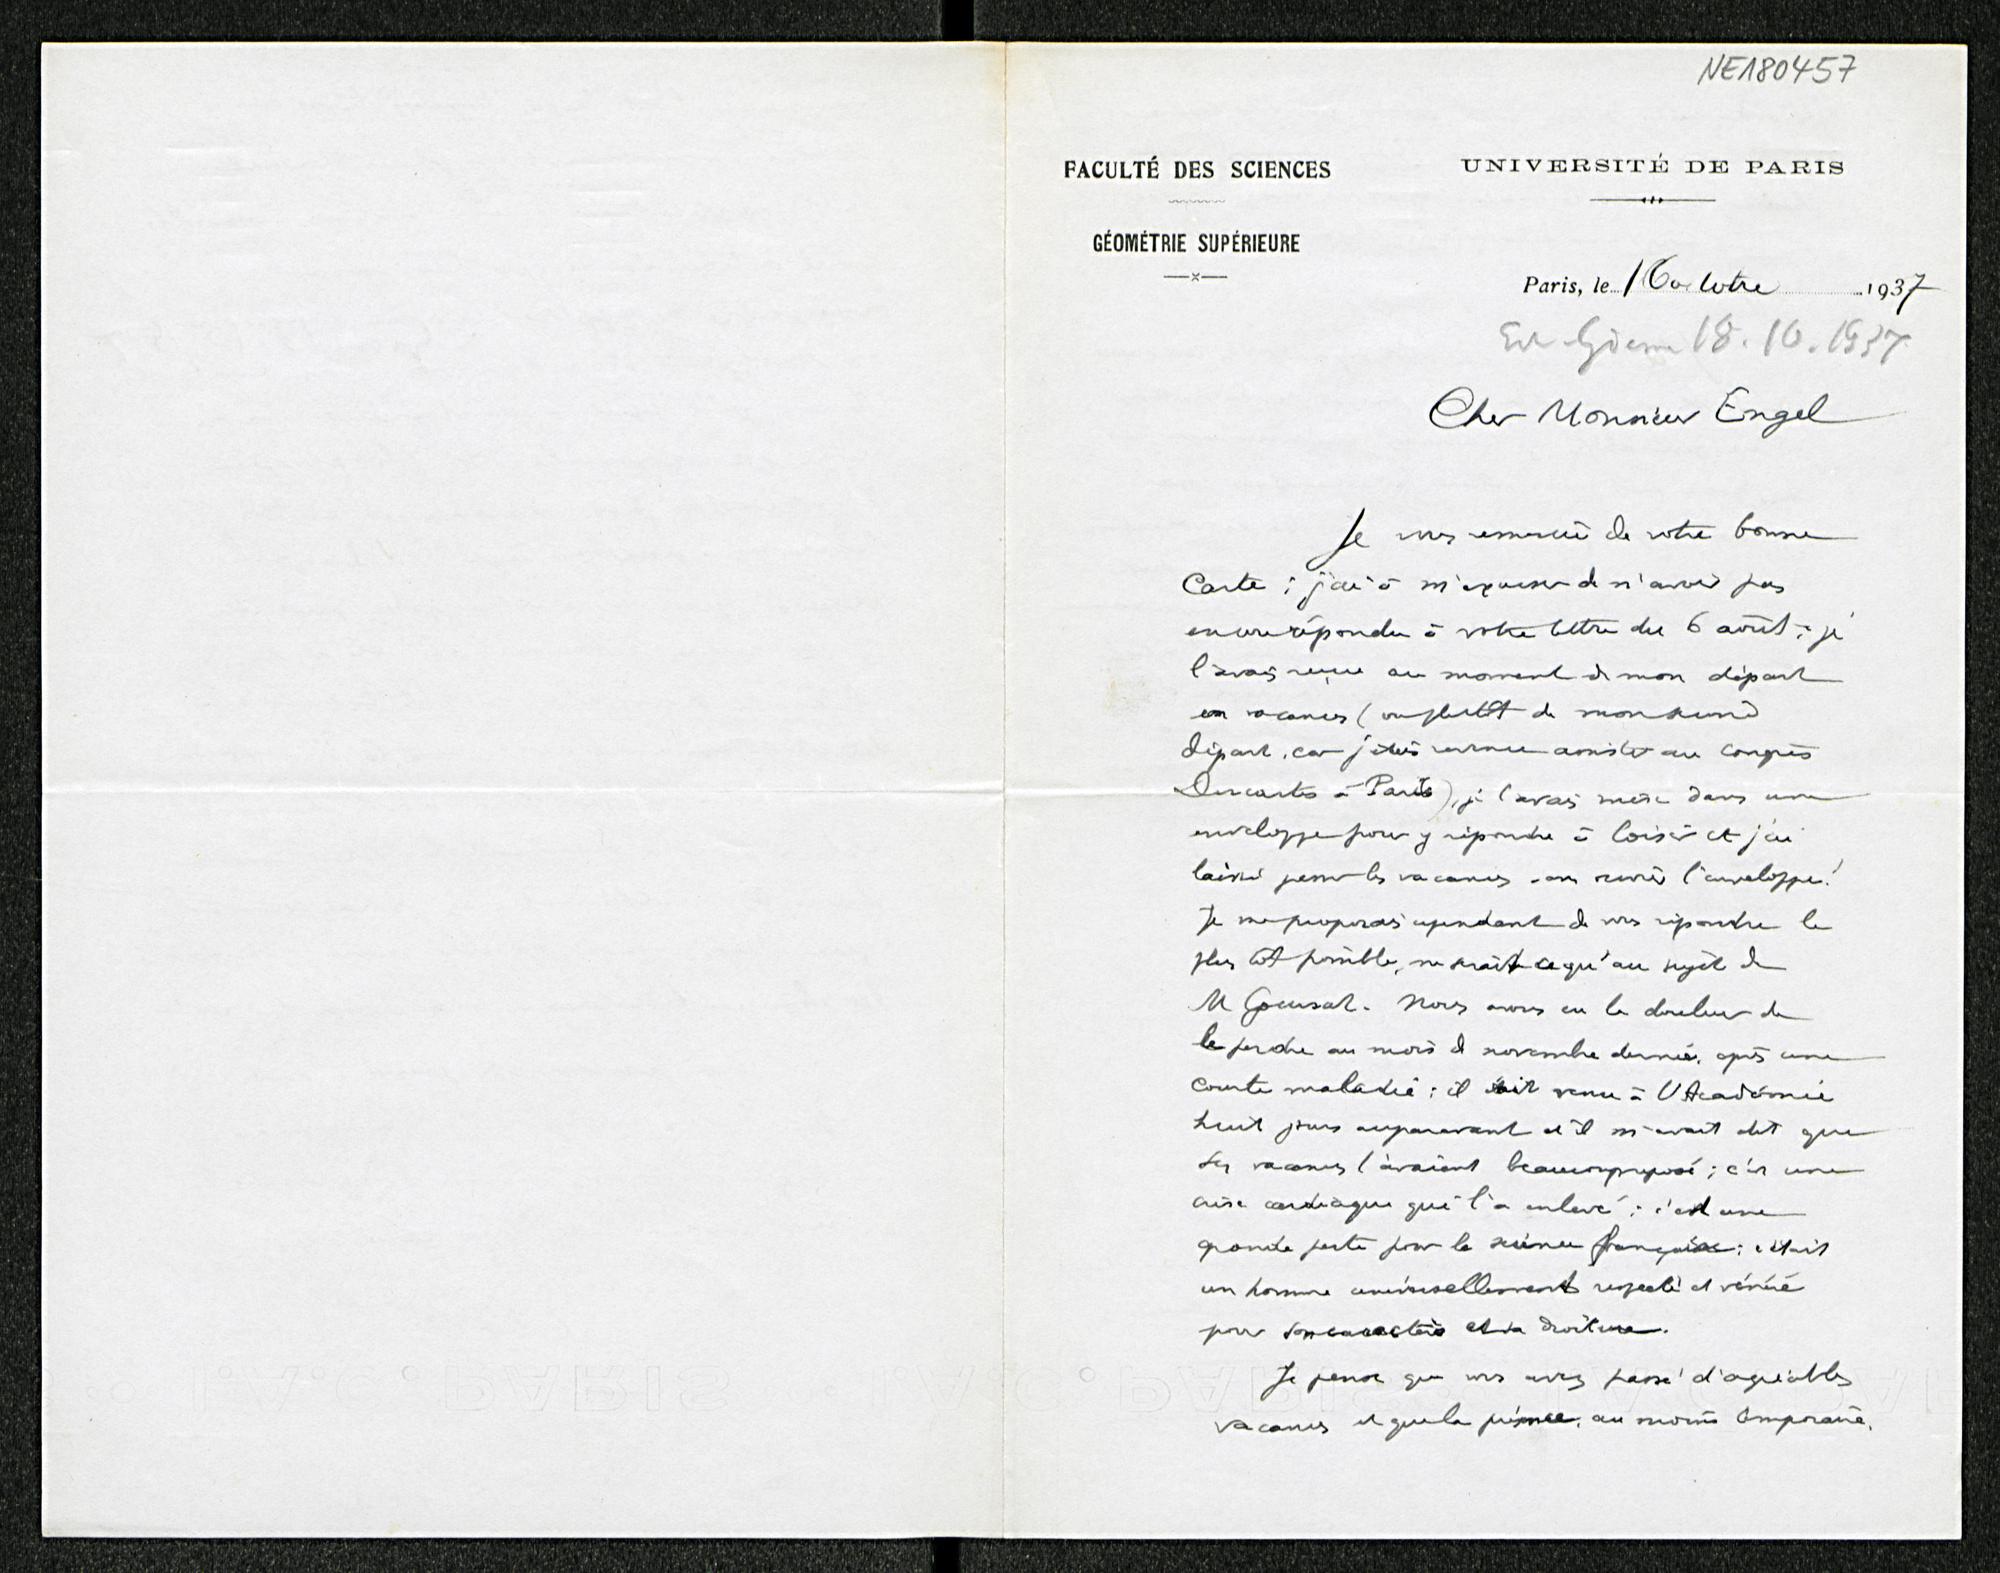 NE180457
FACULTÉ DES SCIENCES
UNIVERSITÉ DE PARIS
GÉOMÉTRIE SUPÉRIEURE
Paris, le 16 octobre 1937
18.10.1937
Cher Monsieur Engel
Je vous remercie de votre bonne
carte ; j'ai à m'excuser de n'avoir pas
encore répondu à votre lettre du 6 août ; je
l'avais reçue au moment de mon départ
en vacances (ou plutôt de mon second
départ, car j'étais revenu assister au Congrès
Descartes à Paris), je l'avais mise dans une
enveloppe pour y répondre à loisir et j'ai
laissé passer les vacances sans rouvrir l'enveloppe!
Je me proposais cependant de vous répondre le
plus tôt possible, ne serait-ce qu'au sujet de
M Goursat. Nous avons eu la douleur de
le perdre au mois de novembre dernier, après une
courte maladie ; il était venu à l'Académie
huit jours auparavant et il m'avait dit que
ses vacances l'avaient beaucoup reposé ; c'est une
crise cardiaque qui l'a enlevé ; c'est une
grande perte pour la science française ; c'était
un homme universellement respecté et vénéré
pour son caractère et sa droiture.
Je pense que vous avez passé d'agréables
vacances et que la présence, au moins temporaire,
I.A.C. PARIS